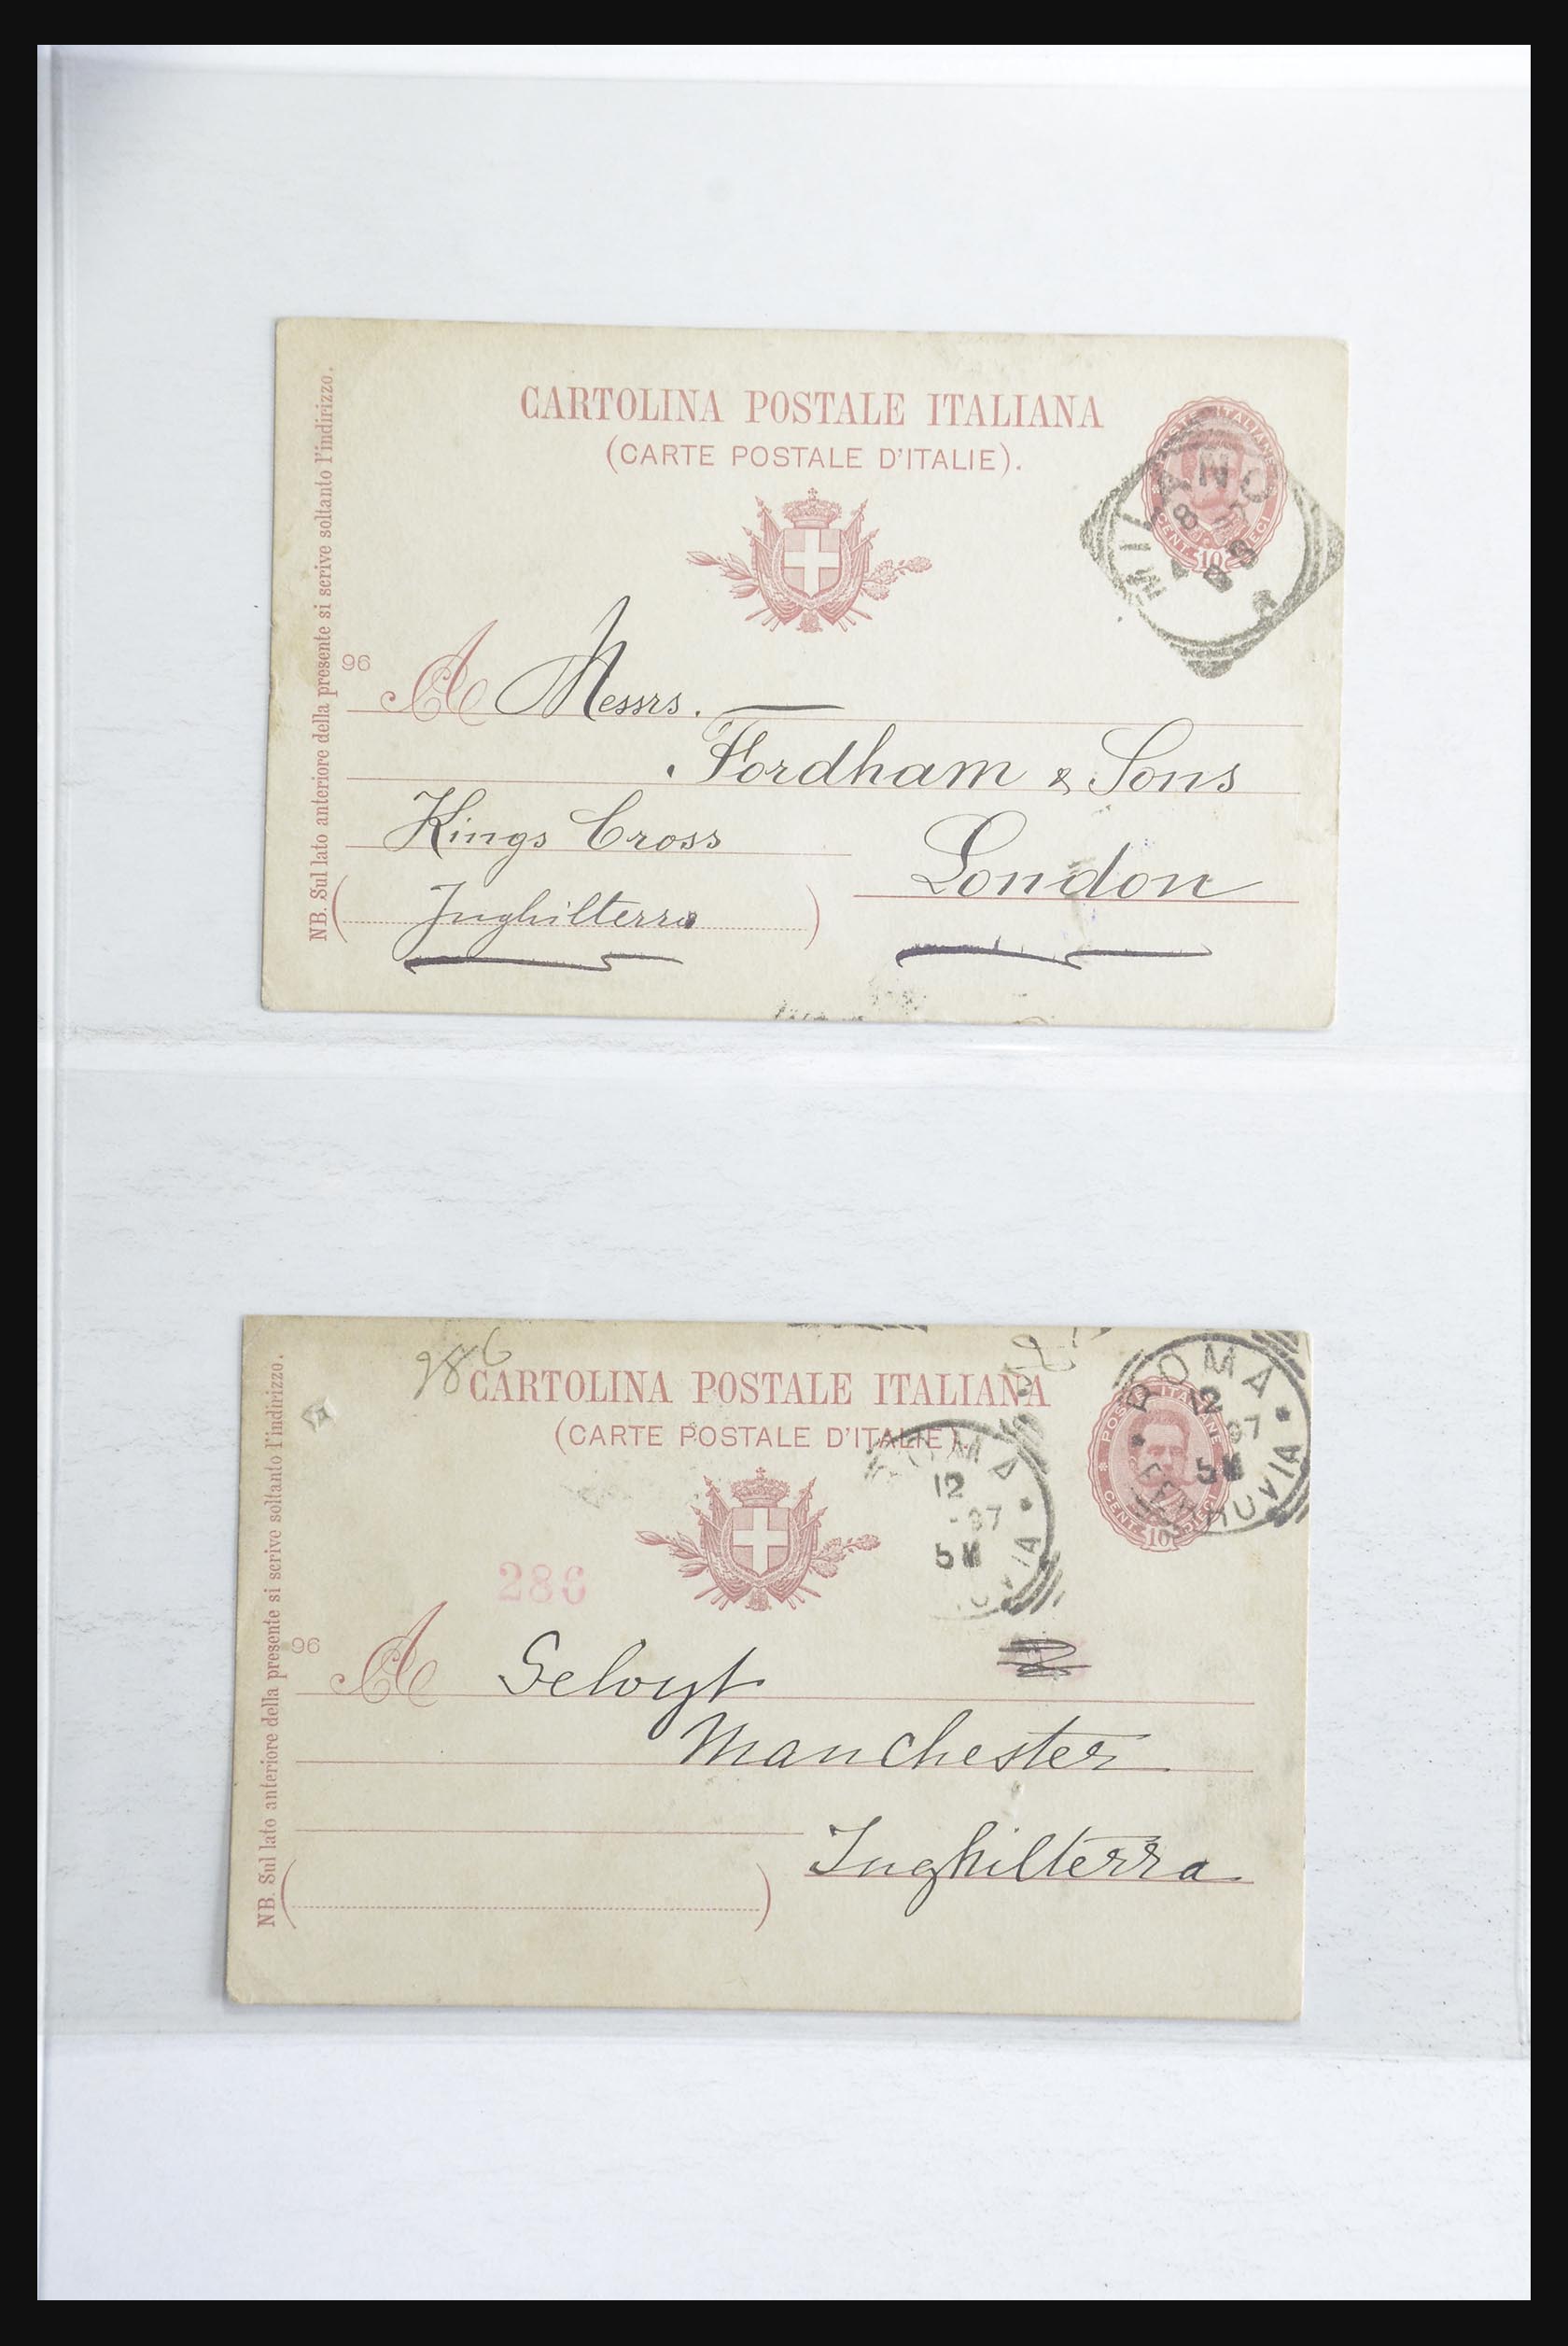 NB. Sul lato anteriore della presente si scrive soltanto l'indirizzo.
CARTOLINA POSTALE ITALIANA
(CARTE POSTALE D'ITALIE).
MILANO
8
CENT. 10 DIECI
96
A Messrs.
Fordham & Sons
Kings Cross
London
(Inghilterra)
NB. Sul lato anteriore della presente si scrive soltanto l'indirizzo.
286
CARTOLINA POSTALE ITALIANA
(CARTE POSTALE D'ITALIE).
ROMA
12
97
5M
FERROVIA
POSTE ITALIANE
CENT. 10 DIECI
ROMA
12
-97
5M
286
96
A Selvyt
Manchester
Inghilterra